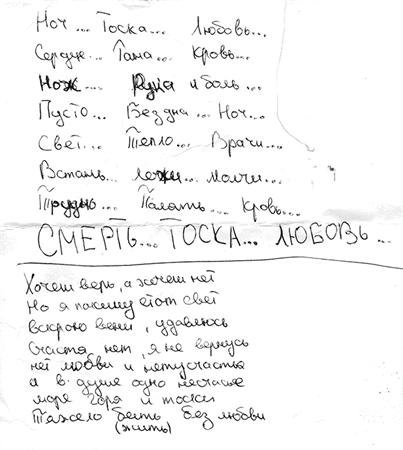 Ноч... Тоска... Любовь...
Сердце... Тама... Кровь...
Нож... Рука и боль...
Пусто... Бездна... Ноч...
Свет... Тепло... Врачи...
Встань... лежи... молчи...
Трудно... Палать... Кровь...
СМЕРТЬ... ТОСКА... ЛЮБОВЬ...
Хочеш верь, а хочеш нет
Но я покину етот свет
вскрою вены, удавлюсь
Счастя нет, я не вернусь
нет любви и нет участья
а в душе одно несчасье
море горя и тоски
Тажело быть без любви
(жить)